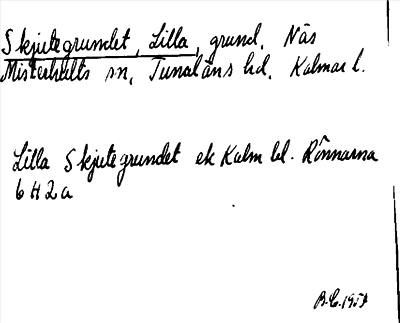 Skjutegrundet, Lilla, grund, Näs
Misterhults sn, Tunaläns hd, Kalmar l.
Lilla Skjutegrundet ek Kalm bl. Rönnarna
6 H 2 a